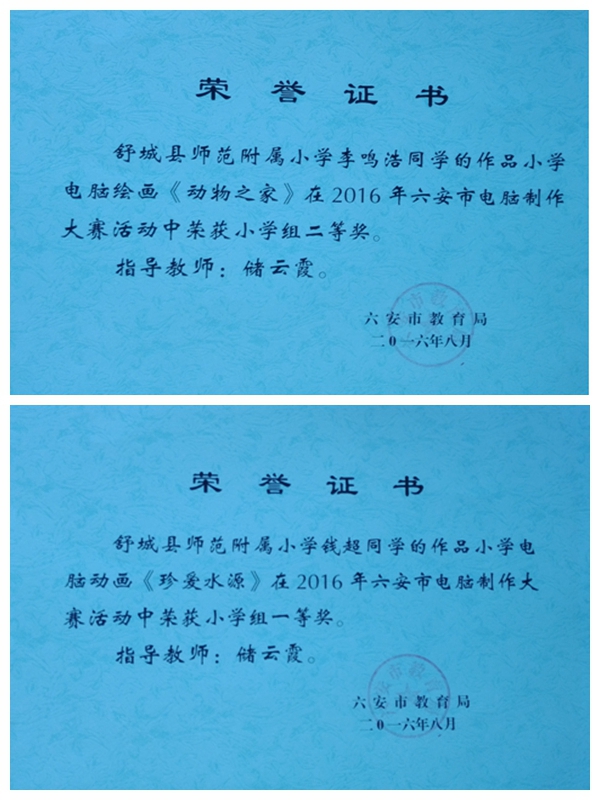 荣誉证书
舒城县师范附属小学李鸣浩同学的作品小学
电脑绘画《动物之家》在2016年六安市电脑制作
大赛活动中荣获小学组二等奖。
指导教师：储云霞。
六安市教育局
二0一六年八月
荣誉证书
舒城县师范附属小学钱超同学的作品小学电
脑动画《珍爱水源》在2016年六安市电脑制作大
赛活动中荣获小学组一等奖。
指导教师：储云霞。
六安市教育局
二0一六年八月